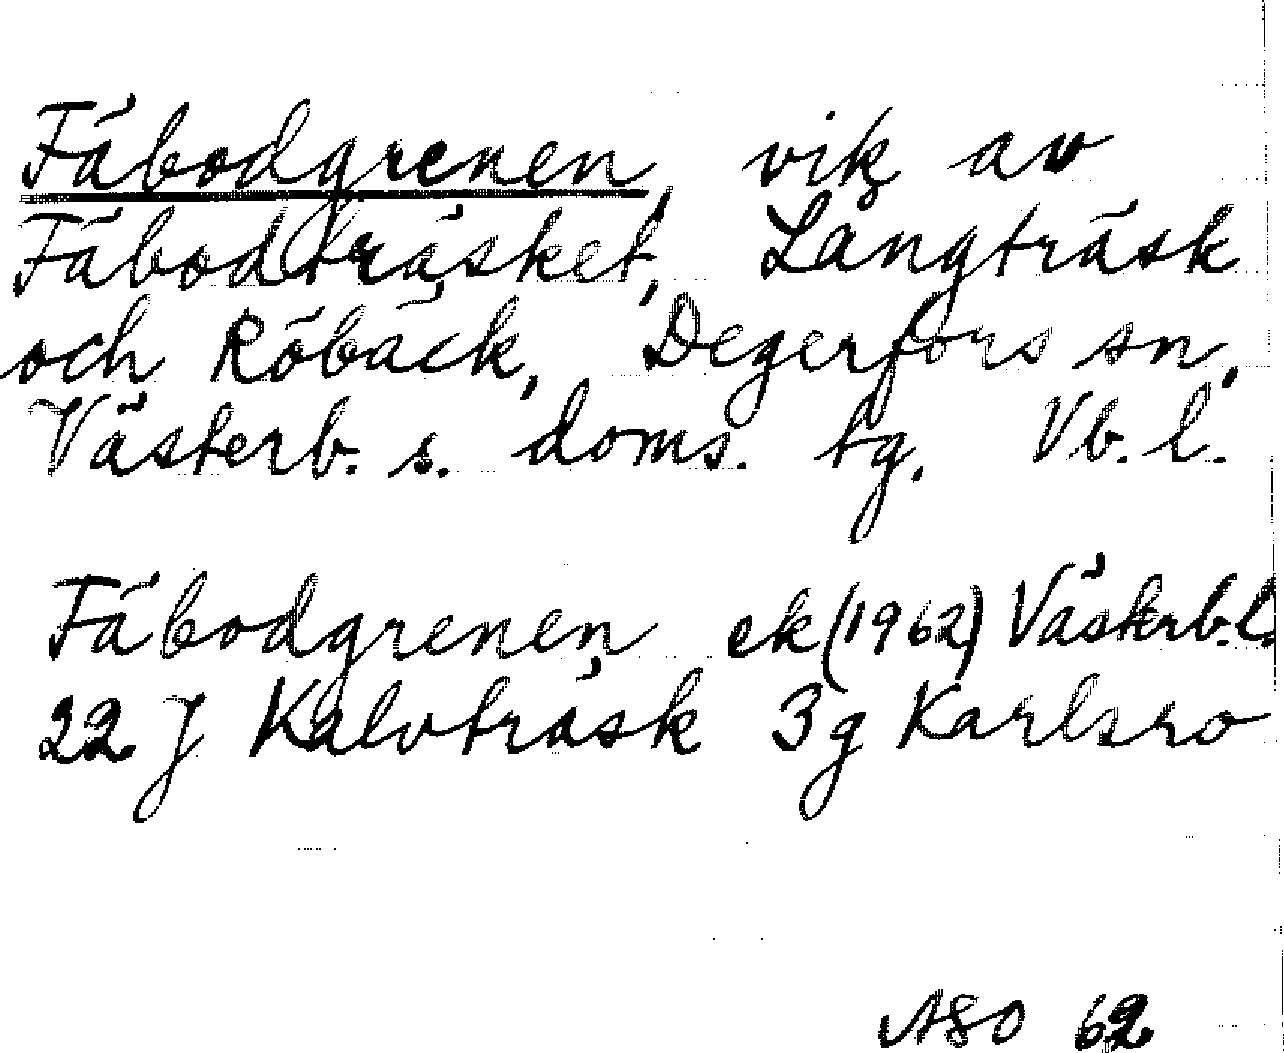 Fäbodgrenen, vik av
Fäbodträsket, Långträsk
och Röbäck, Degerfors sn,
Västerb. s. doms. tg. Vb. l.
Fäbodgrenen ek (1962) Västerb. l.
22 J Kalvträsk 3g Karlsro
ASO 62